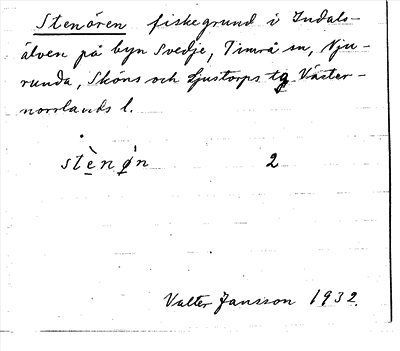 Stenören fiskegrund i Indals-
älven på byn Svedje, Timrå sn, Nju-
runda, Sköns och Ljustorps tg Väster-
norrlands l.
stè̱nø̱̀n 2
Valter Jansson 1932.